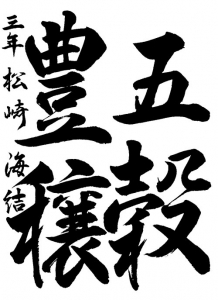 五穀
豊穣
三年 松崎 海結